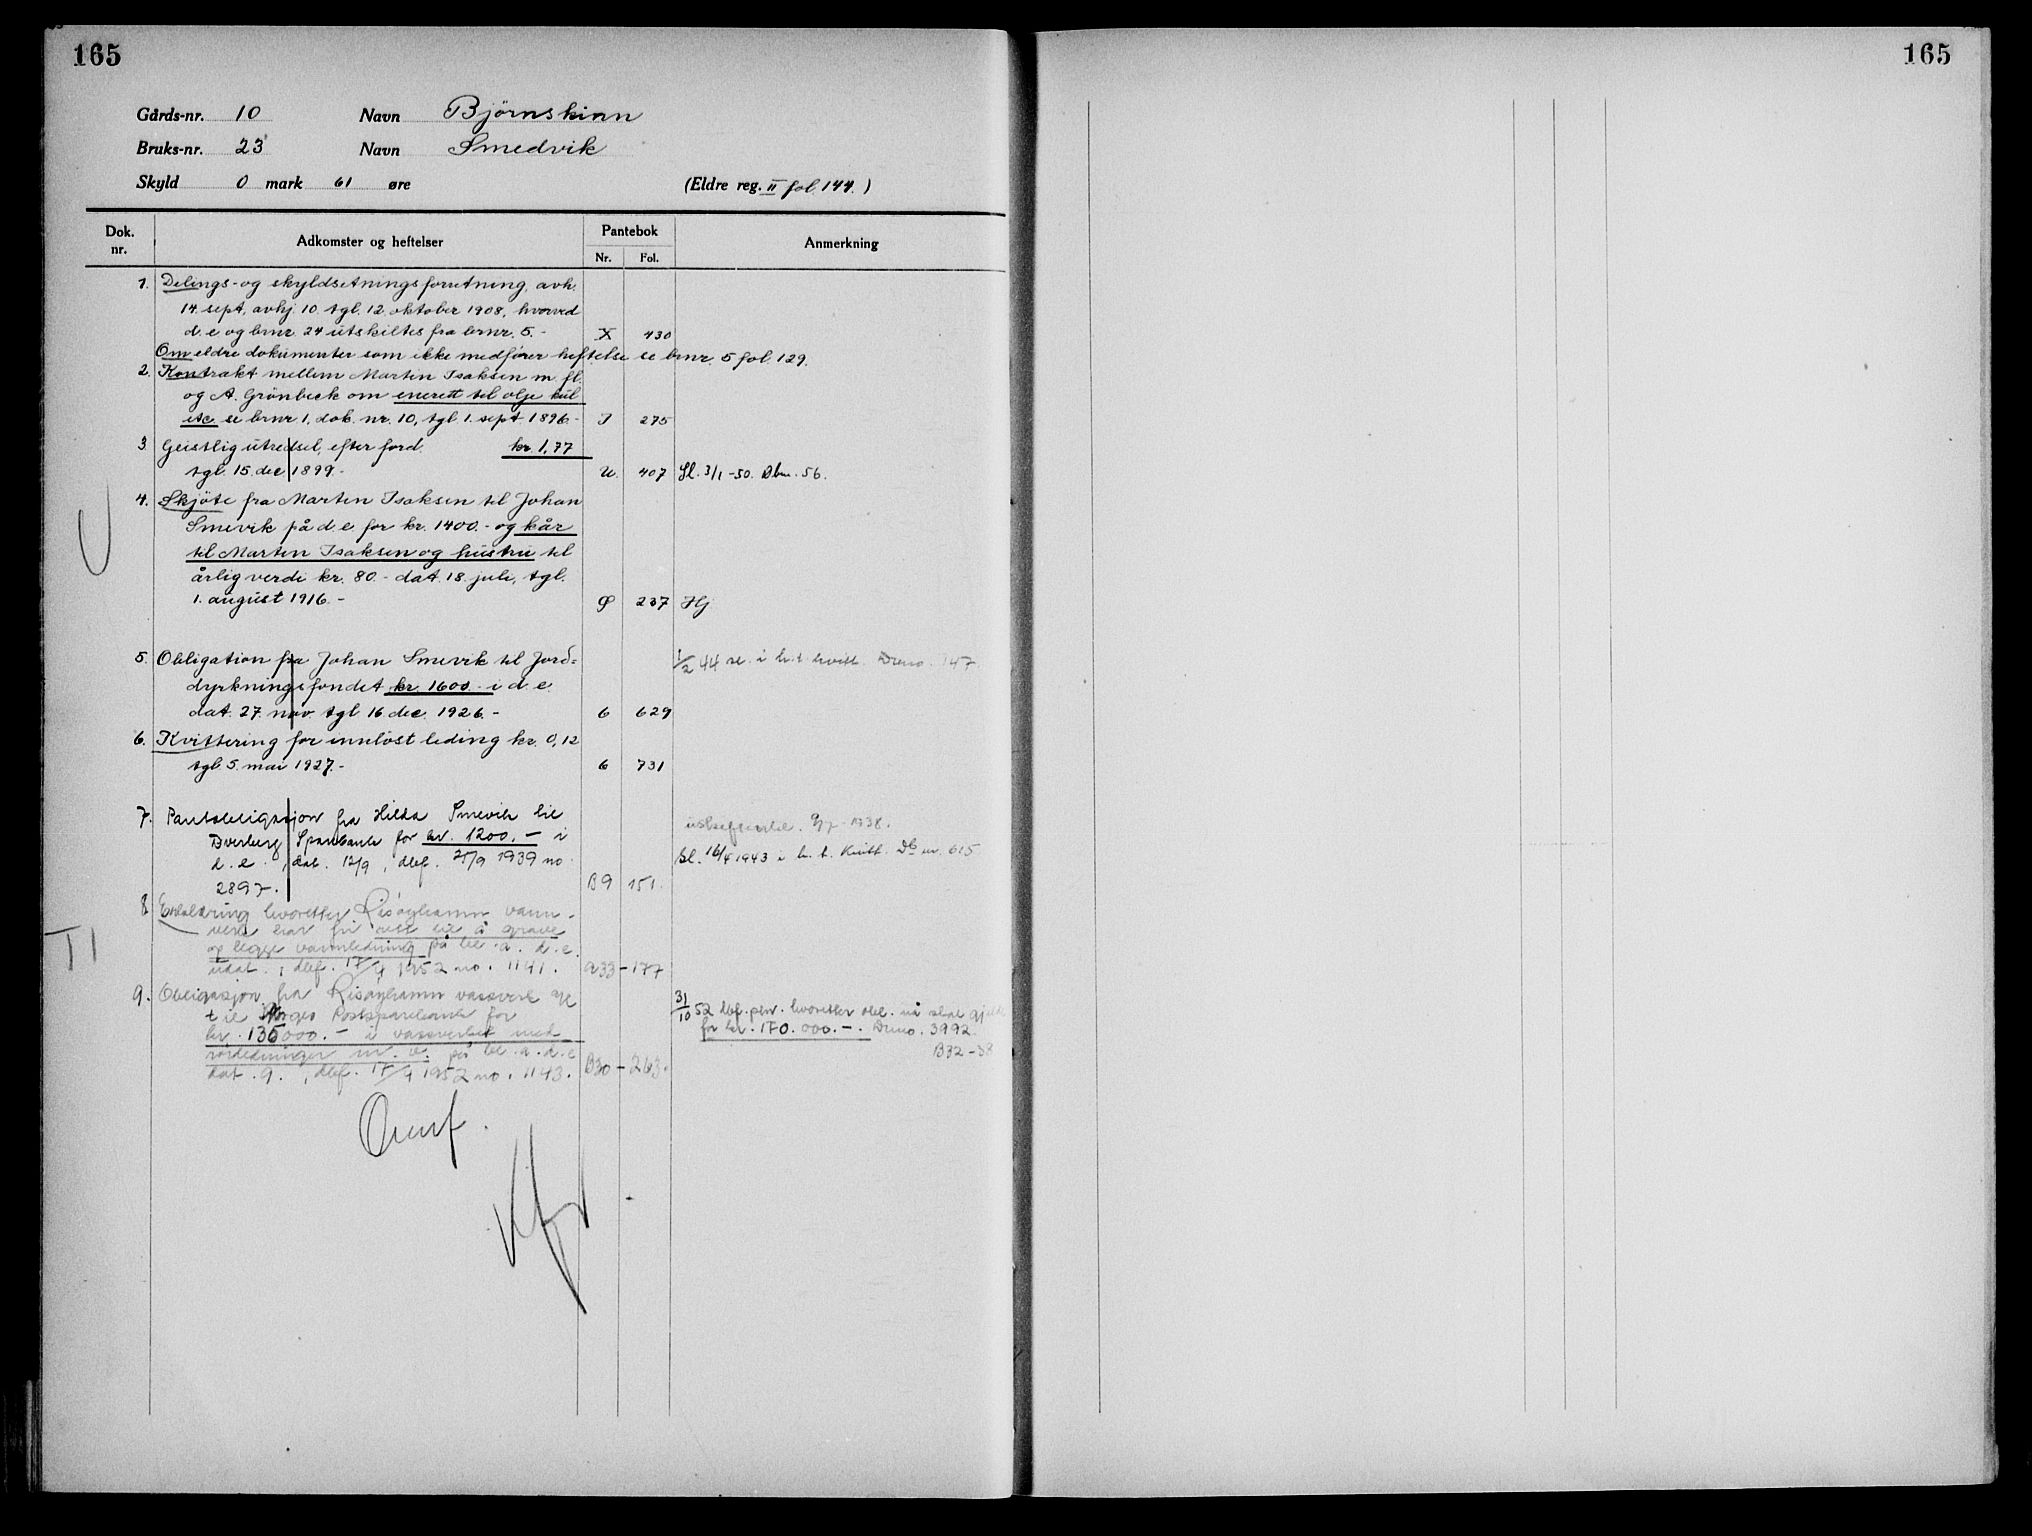 165
165
Gårds-nr. 10 Navn Björnskinn
Bruks-nr. 23 Navn Smedvik
Skyld 0 mark 61 øre (Eldre reg. II fol. 144.)
Dok. nr. Adkomster og heftelser Pantebok Anmerkning
Nr. Fol.
1. Delings- og skyldsetningsforretning, avh.
14. sept, avhj. 10. tgl. 12. oktober 1908, hvorved
d. e og brnr. 24 utskiltes fra brnr. 5. - X 430
Om eldre dokumenter som ikke medfører heftelse se brnr. 5 fol 129.
2. Kontrakt mellem Martin Isaksen m. fl.
og A. Grönbeck om enerett til olje kul
etc. se brnr 1, dok. nr. 10, tgl. 1. sept 1896.- I 275
3. Geistlig utredsel, efter ford. kr. 1,77
tgl. 15. dec 1899.- U. 407 Sl. 3/1 -50. Dbn. 56.
4. Skjöte fra Martin Isaksen til Johan
Smevik på d. e for kr. 1400.- og kår
til Martin Isaksen og hustru til
årlig verdi kr. 80.- dat. 18. juli, tgl.
1. august 1916.- 237 Hj
5. Obligation fra Johan Smevik til Jord=
dyrkningsfondet kr. 1600.- i d. e.
dat. 27. nov. tgl 16 dec. 1926.- 6 629
1/2 44 sl. i h. t. kvitt. 147.
6. Kvittering for innlöst leding kr. 0,12
tgl. 5. mai 1927.- 6 731
7. Pantobligasjon fra Hilda Smevik til
Dverberg Sparebank for kr. 1200.- i
d. e., dat. 12/9, dbf. 25/9 1939 no.
2897. B9 151.
1938.
Sl. 16/4 1943 i h. t. Kvitt. Db nr. 615
8. Erklæring hvoretter Risøyhamn vann-
verk har fri rett til å grave
og legge vannledning på bl. a. d. e.
udat., dbf. 17/4 1952 no. 1141. A33-177
9. Obligasjon fra Risøyhamn vassverk
til Norges Postsparebank for
kr. 135000.- i vassverket med
rörledninger m. v. på bl. a. d. e
dat. 9., dbf. 17/4 1952 no. 1143. B30-263.
31/10 52 dbf. hvoretter obl. nå skal
for kr. 170.000.-. Dnno. 3992.
B32-38